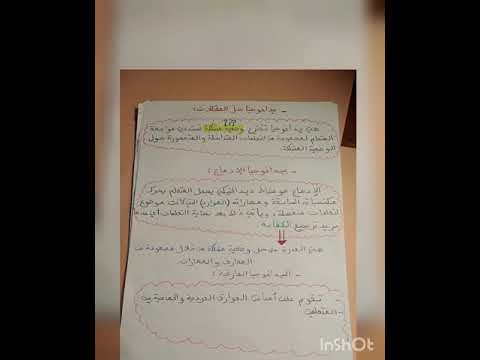 - بيداغوجيا حل المشكلات:
هي بيداغوجيا تقترح وضعية مشكلة تستدعي مواجهة
المتعلم لمجموعة من التعلمات المتداخلة والمتمحورة حول
الوضعية المشكلة.
- بيداغوجيا الإدماج:
الإدماج هو نشاط ديداكتيكي يجعل المتعلم يحرك
مكتسباته السابقة ومهاراته (الموارد) التي كانت موضوع
تعلمات منفصلة، ويأتي ذلك بعد نهاية التعلمات أي عندما
نريد ترسيخ الكفاية
هي القدرة على حل وضعية مشكلة من خلال مجموعة من
المعارف والمهارات.
- البيداغوجيا الفارقية:
- تقوم على أساس الفوارق الفردية والجماعية بين
المتعلمين-
InShOt